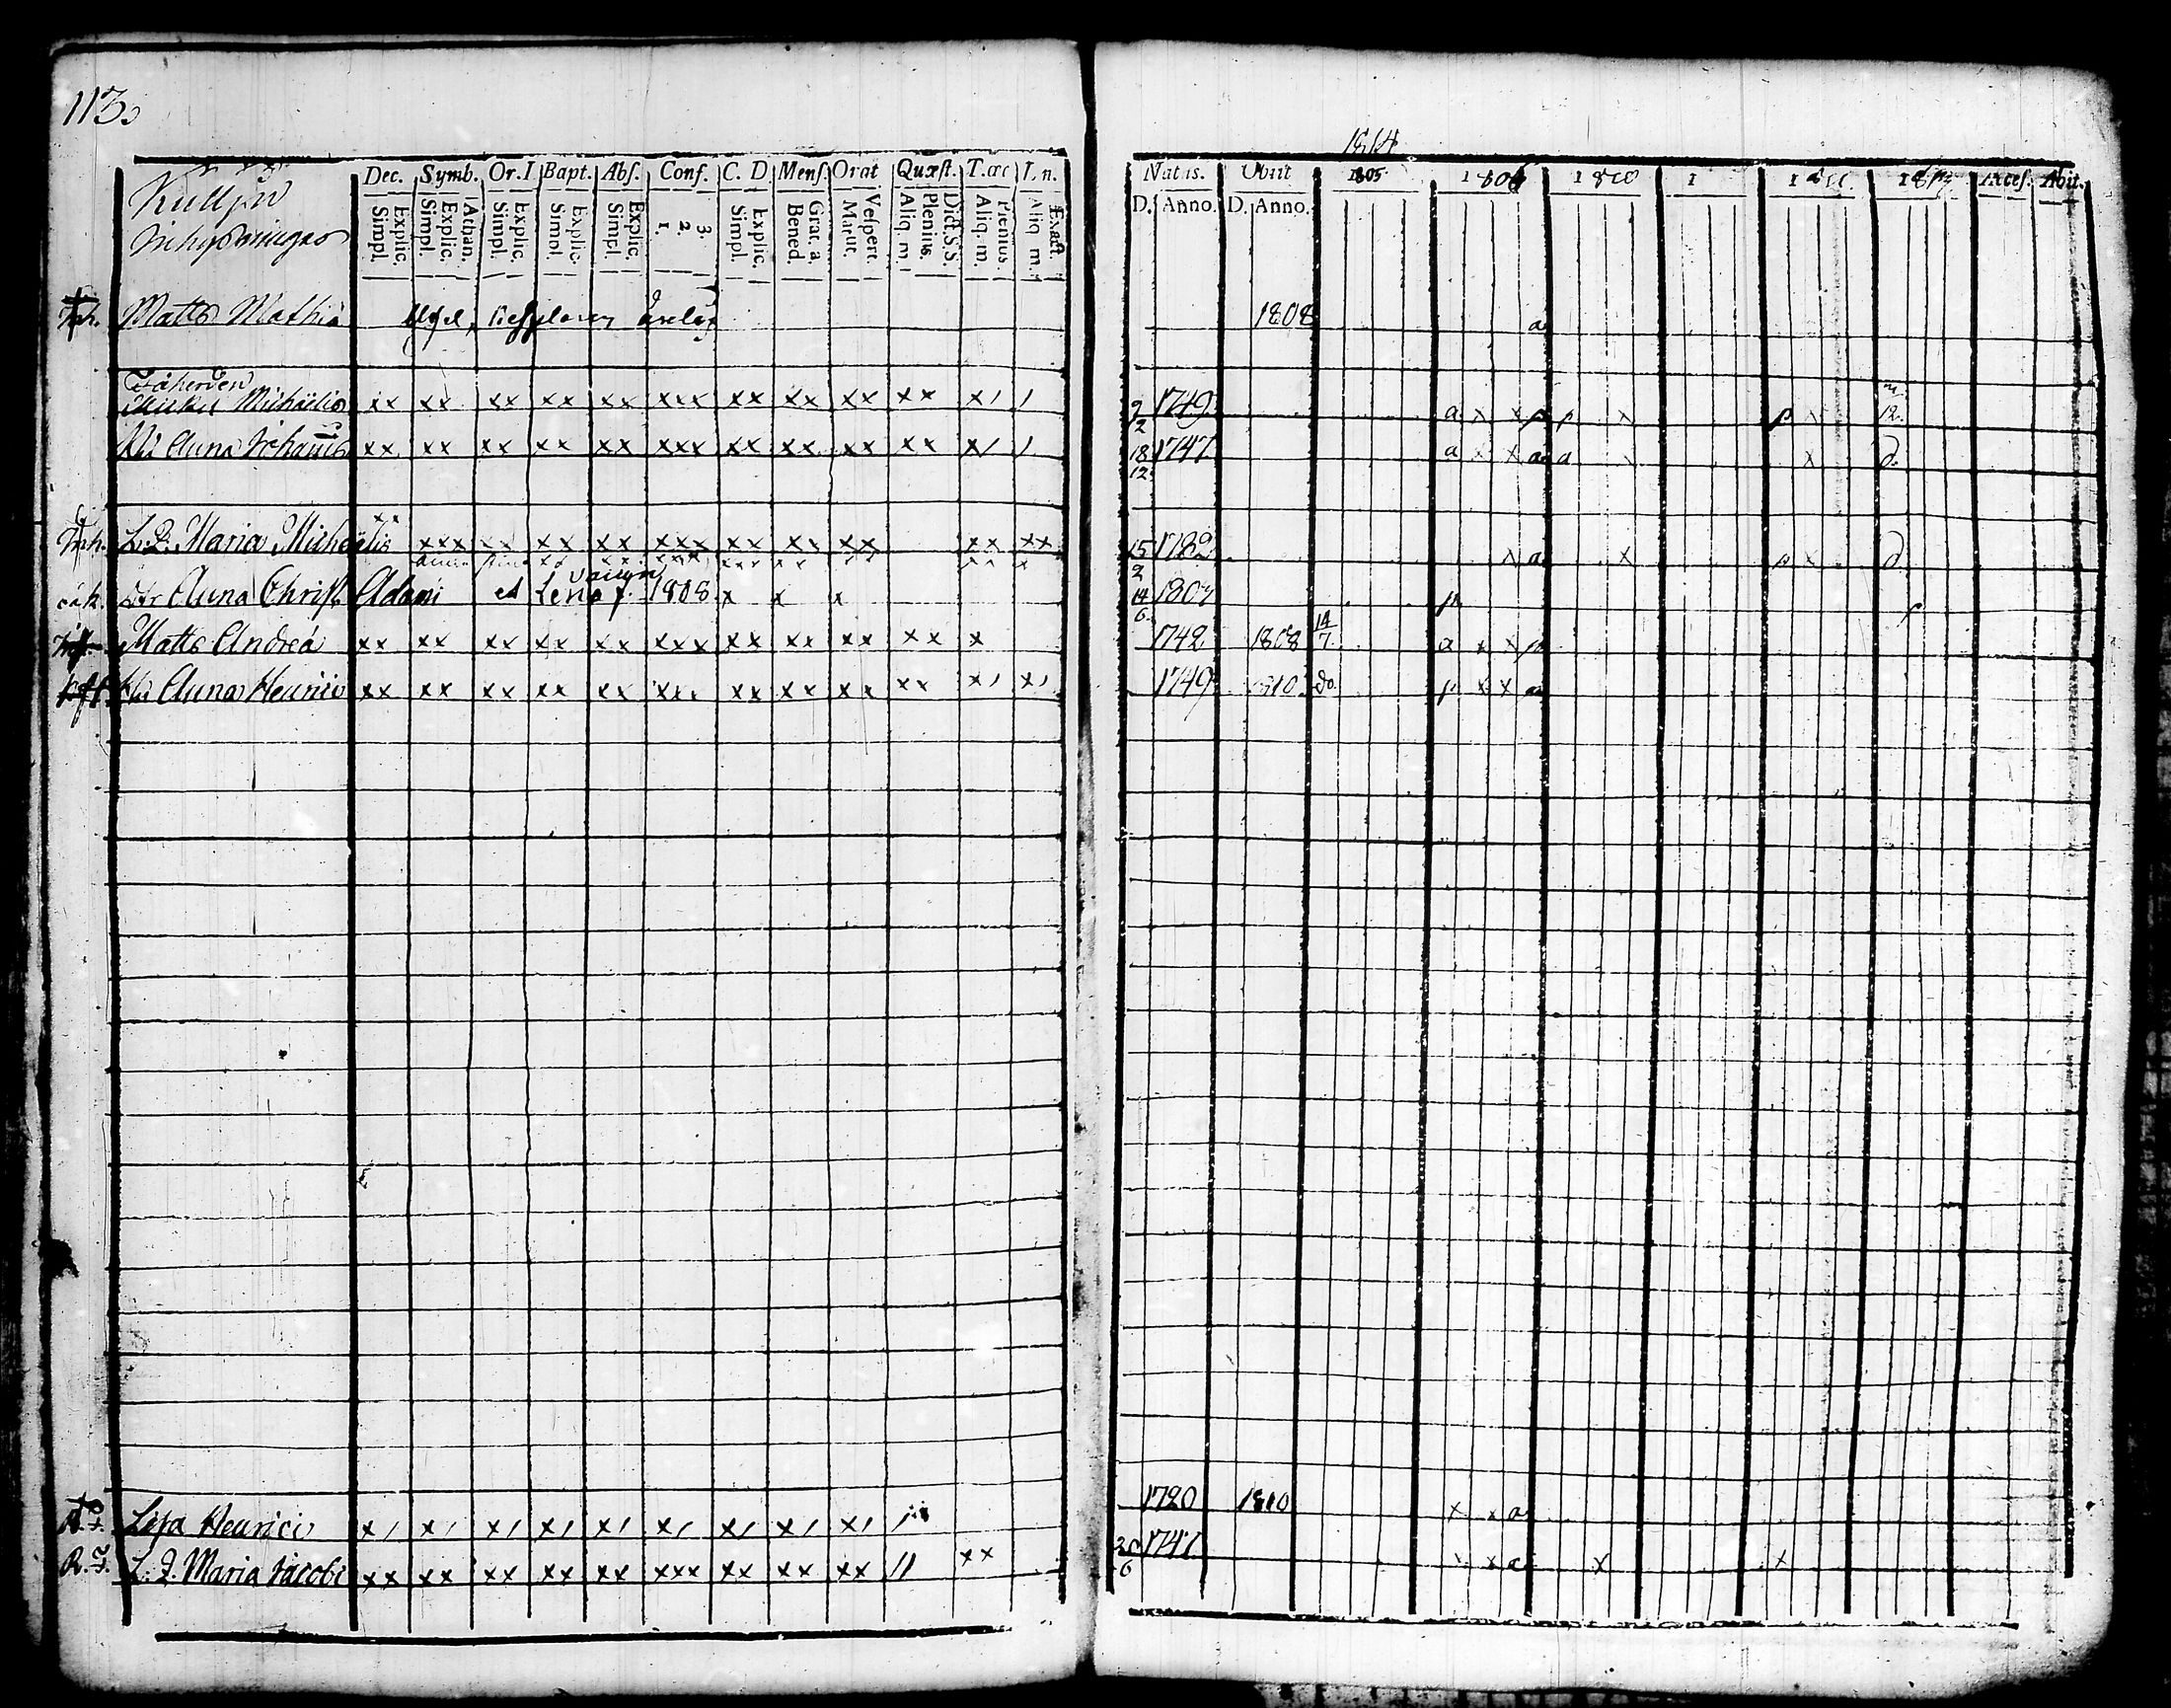 113.
1814
Dec. Symb. Or. I Bapt. Abs. Conf. C. D Mens. Orat Quæst. T.œc I. n.
Natus. Obiit 1805 1806 1810 1 1811 1813 Acces. Abit.
Explic. Simpl. Athan. Explic. Simpl. Explic. Simpl. Explic. Simpl. Explic. Simpl. 3. 2. 1. Explic. Simpl. Grat. a. Bened. Vespert. Matut. Dict. S.S. Plenius. Aliq. m. Plenius. Aliq. m. Exact. Aliq. m.
D. Anno. D. Anno.
Inh. Matts Mathiæ 1808 a
Michel Michaëlis xx xx xx xx xx xxx xx xx xx xx x/ / 9/12 1749 a x x p p x p x
Hu Anna Johannis xx xx xx xx xx xxx xx xx xx xx x/ / 18/12 1747 a x x a a x d.
Inh. L. D. Maria Michaëlis xx xxx xx xx xx xxx xx xx xx xx xx 15/2 1789 x a x p x d
Dtr Anna Christ. Adami et Lena f. 1808. x x x 14/6 1807 p
Matts Andreä xx xx xx xx xx xxx xx xx xx xx x 1742 1808 14/7 a x x p
Hu Anna Henrici xx xx xx xx xx xxx xx xx xx xx x/ x/ 1749 1810 do. p x x a
Lisa Henrici x/ x/ x/ x/ x/ x/ x/ x/ x/ 1720 1810 x x a
L. D. Maria Jacobi xx xx xx xx xx xxx xx xx xx // xx 1747 x x a x x